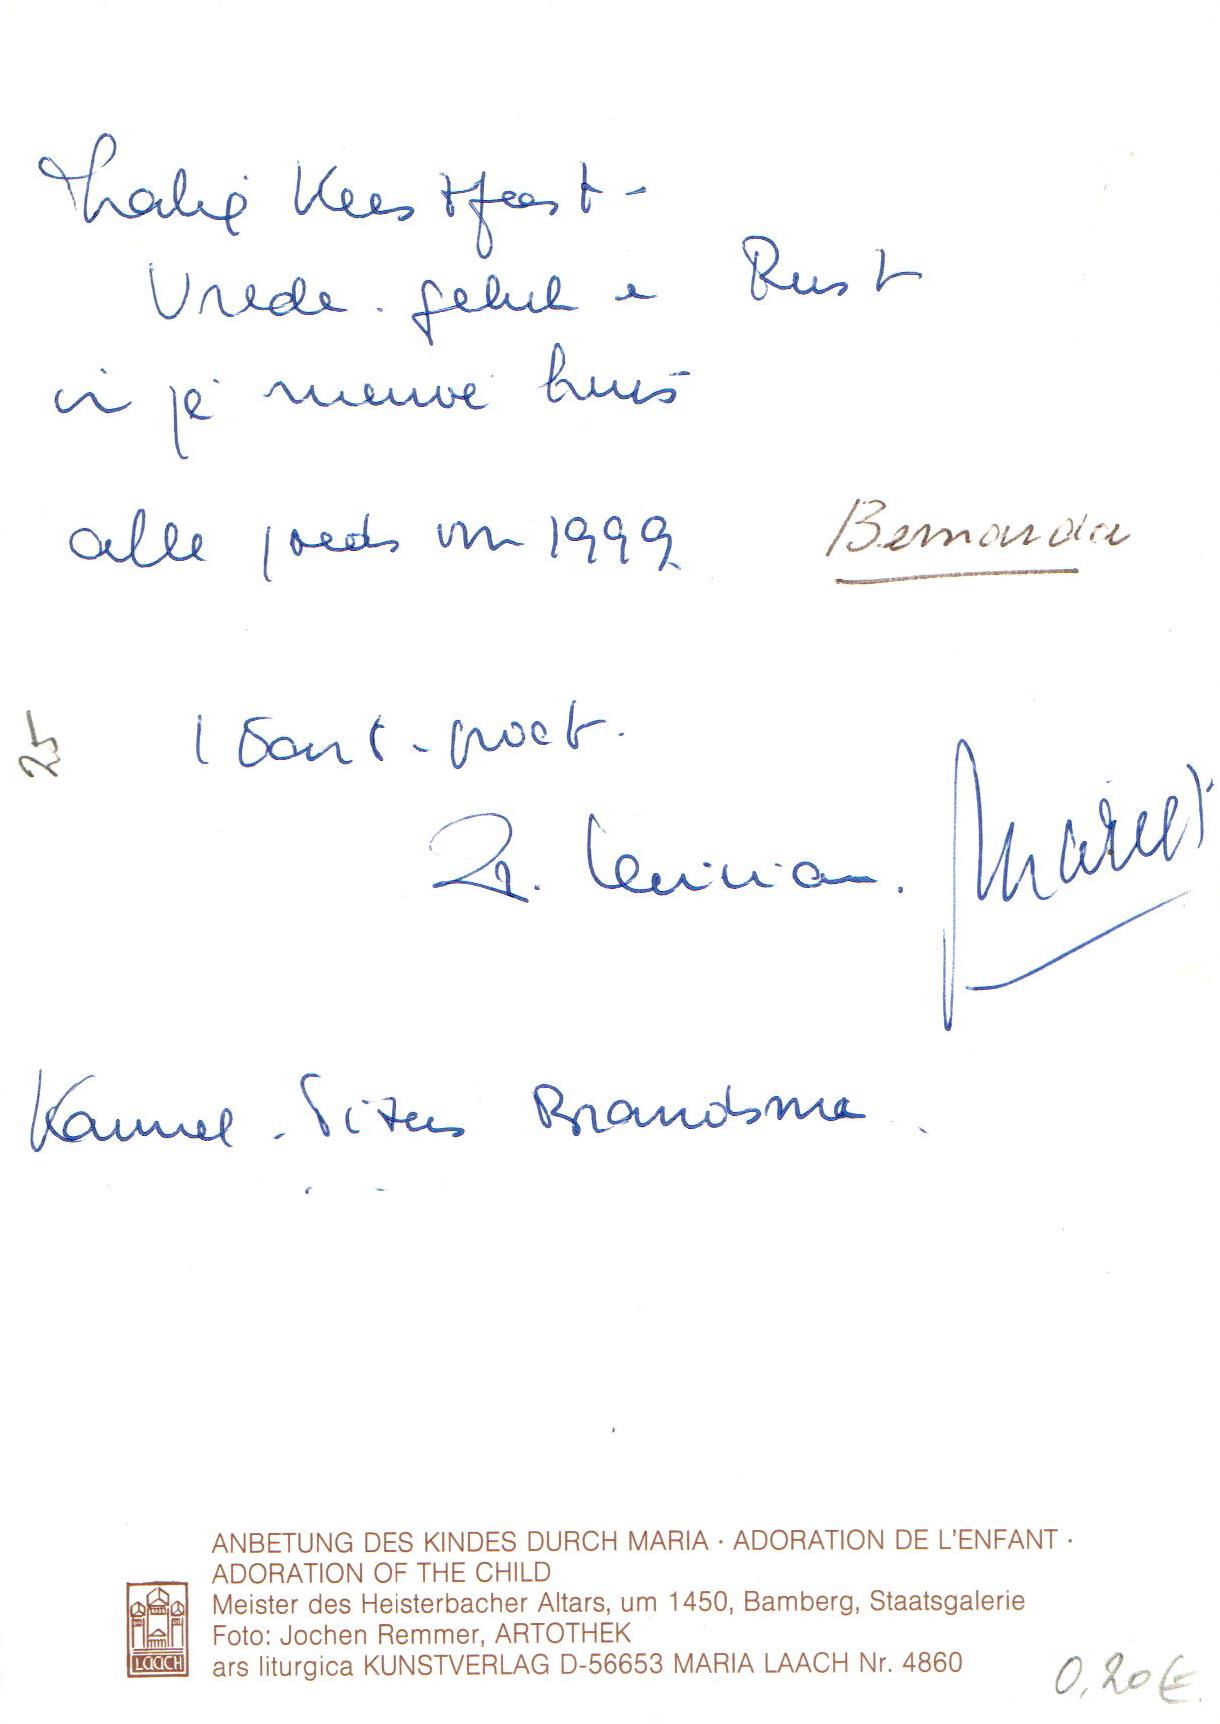 Zalig Kerstfeest -
Vrede. geluk en Rust
in je nieuwe huis
alle goeds voor 1999
Bernarda
25
1 Sant-groet.
Zr.
Karmel. Titus Brandsma.
ANBETUNG DES KINDES DURCH MARIA · ADORATION DE L'ENFANT ·
ADORATION OF THE CHILD
Meister des Heisterbacher Altars, um 1450, Bamberg, Staatsgalerie
Foto: Jochen Remmer, ARTOTHEK
ars liturgica KUNSTVERLAG D-56653 MARIA LAACH Nr. 4860
LAACH
0,20 €